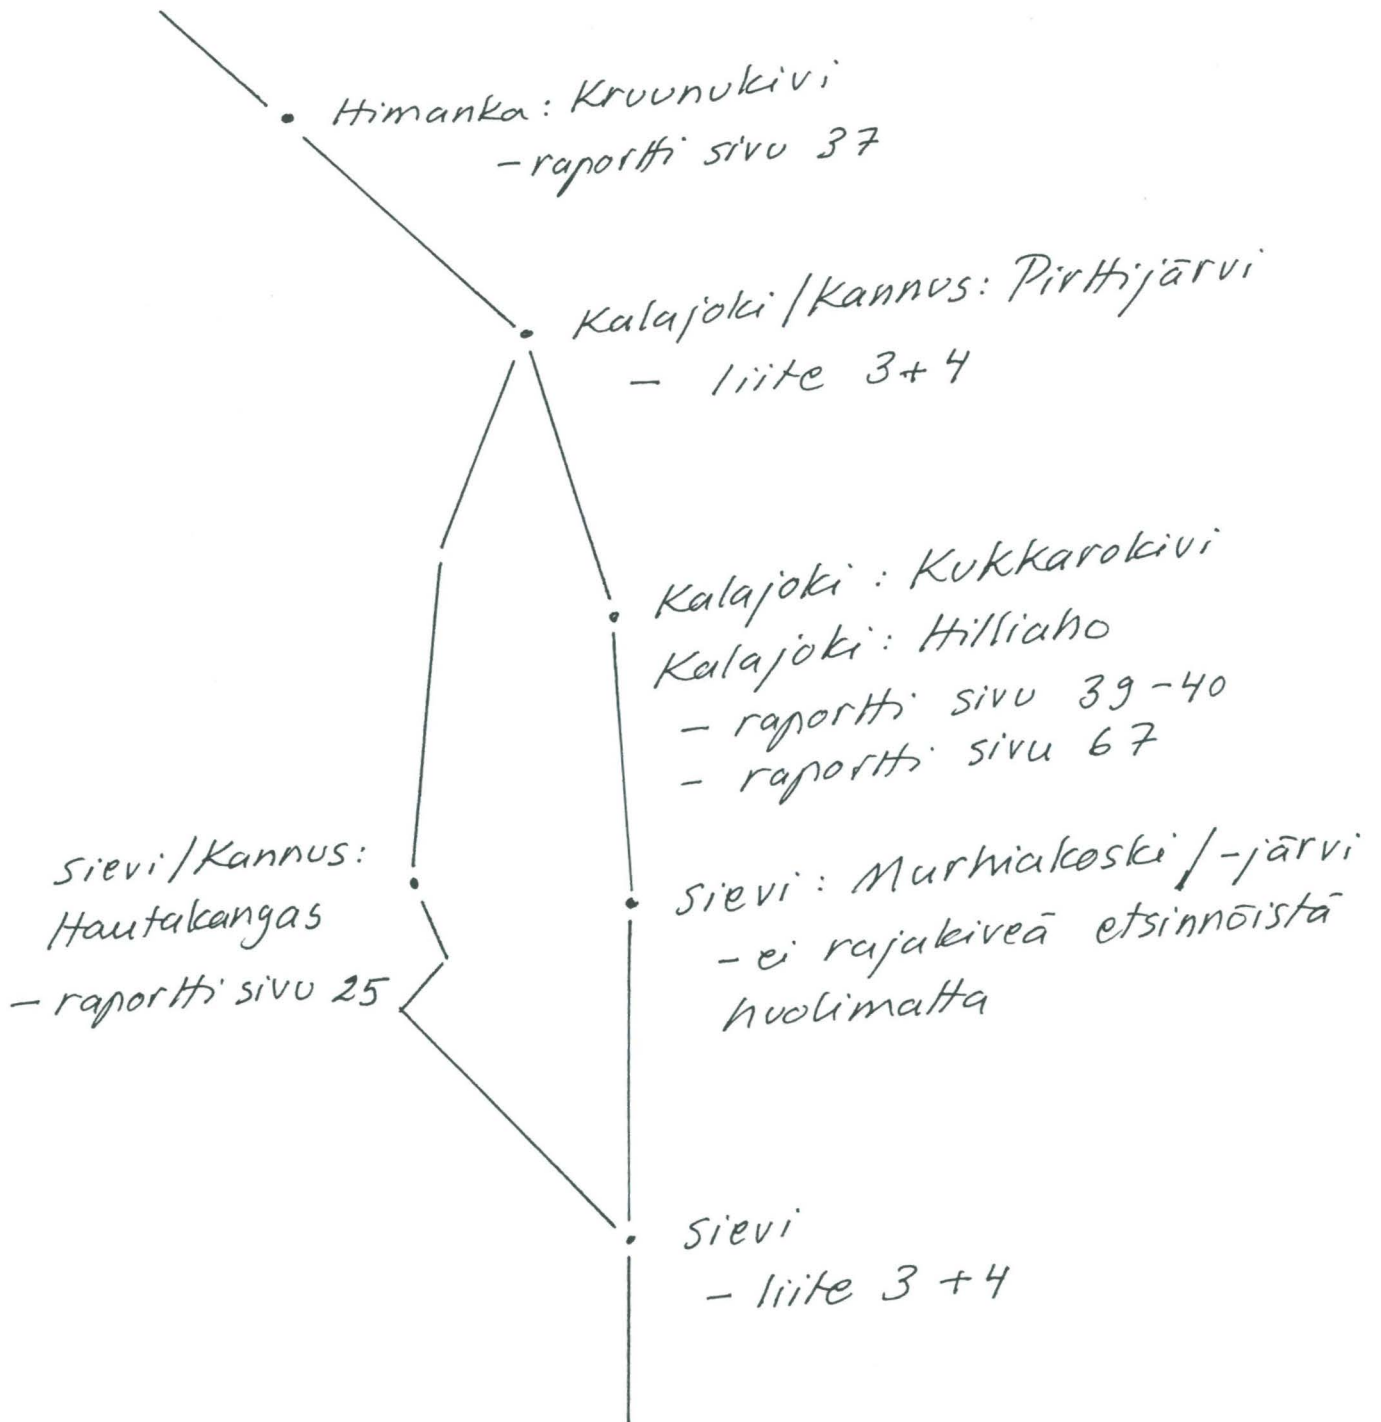 Himanka: Kruunukivi
- raportti sivu 37
Kalajoki/Kannus: Pirttijärvi
- liite 3+4
Kalajoki: Kukkarokivi
Kalajoki: Hilliaho
- raportti sivu 39-40
- raportti sivu 67
Sievi/Kannus:
Hautakangas
- raportti sivu 25
Sievi: Murhiakoski/-järvi
- ei rajakiveä etsinnöistä
huolimatta
Sievi
- liite 3+4